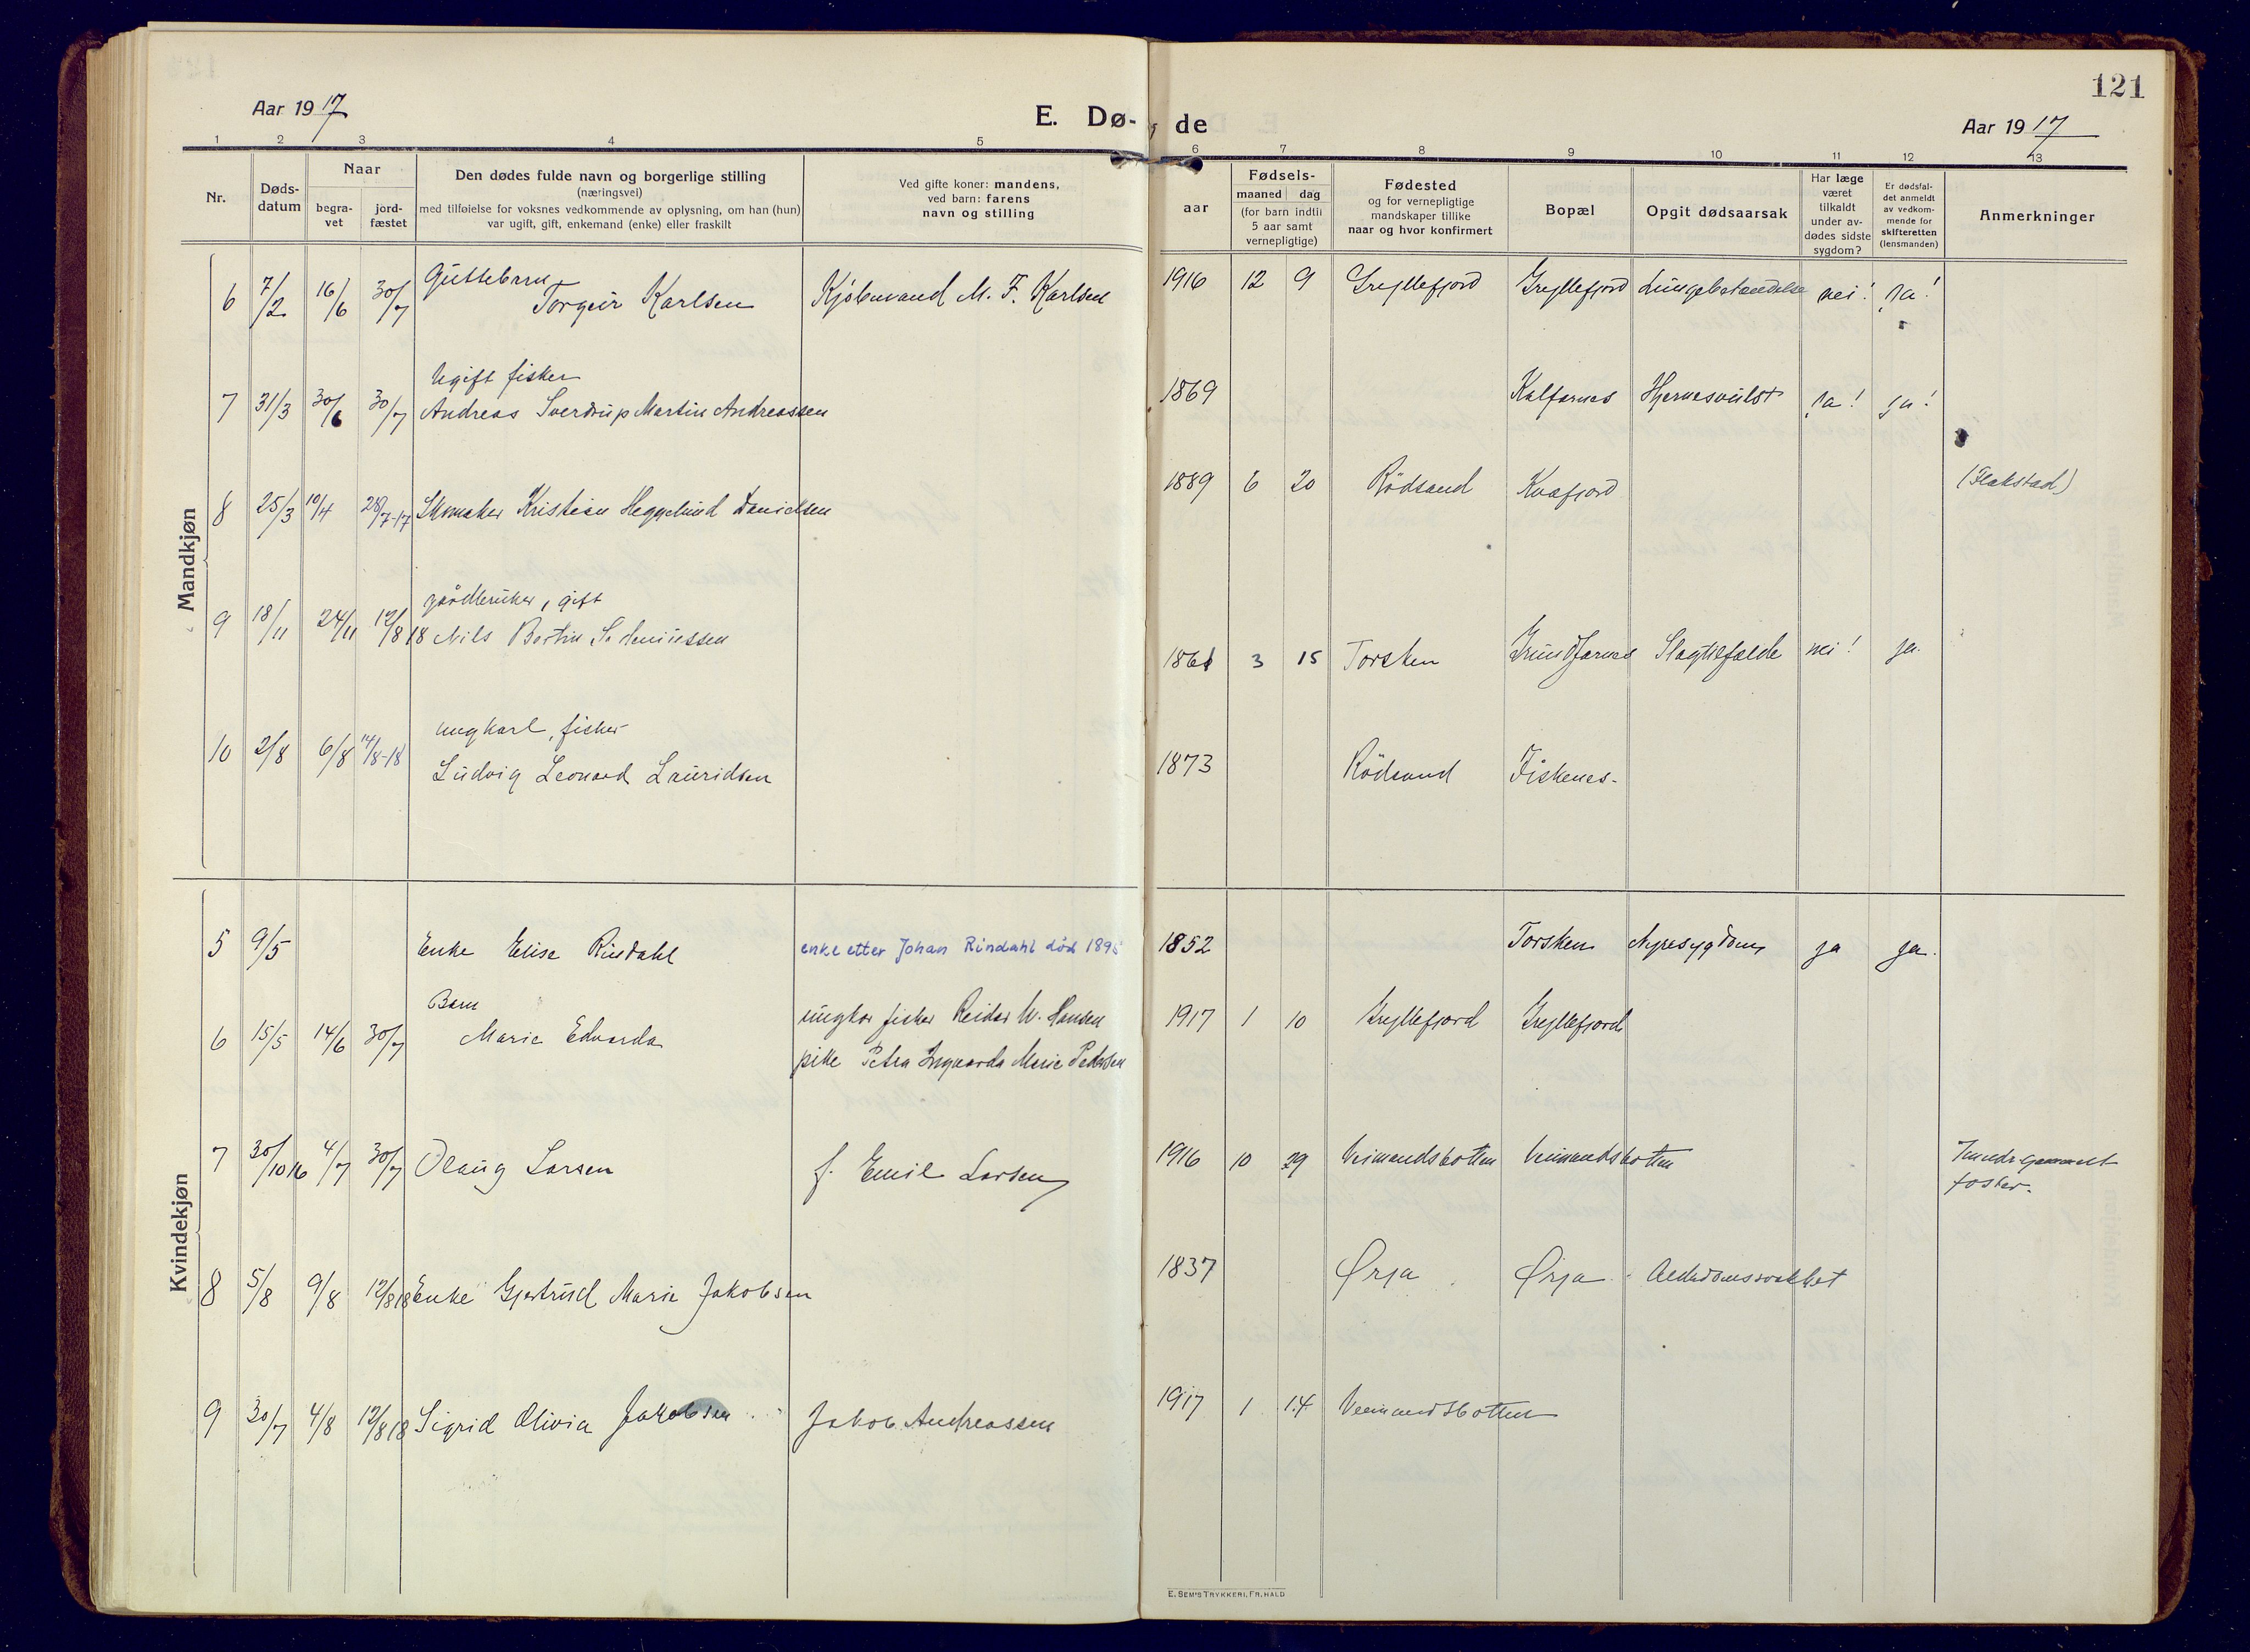 121
Aar 1917
E. Dø- de
Aar 1917
1 2 3 4 5 6 7 8 9 10 11 12 13
Nr.
Døds-
datum
Naar
begra-
vet
jord-
fæstet
Den dødes fulde navn og borgerlige stilling
(næringsvei)
med tilføielse for voksnes vedkommende av oplysning, om han (hun)
var ugift, gift, enkemand (enke) eller fraskilt
Ved gifte koner: mandens,
ved barn: farens
navn og stilling
aar
Fødsels-
maaned dag
(for barn indtil
5 aar samt
vernepligtige)
Fødested
og for vernepligtige
mandskaper tillike
naar og hvor konfirmert
Bopæl
Opgit dødsaarsak
Har læge
været
tilkaldt
under av-
dødes sidste
sygdom?
Er dødsfal-
det anmeldt
av vedkom-
mende for
skifteretten
(lensmanden)
Anmerkninger
Mandkjøn
Guttebarn
6 7/2 16/6 30/7 Torgeir Karlsen Kjøbmand M. F. Karlsen 1916 12 9 Gryllefjord Gryllefjord Lungebetændelse nei! ja!
Ugift fisker
7 31/3 30/6 30/7 Andreas Sverdrup Martin Andreassen 1869 Kalfarnes Hjernesvulst ja! ja!
8 25/3 10/4 28/7-17 Skomaker Kristian Heggelund Danielsen 1889 6 20 Rödsand Kvæfjord (Flakstad)
gårdbruker, gift
9 18/11 24/11 12/8 18 Nils Bertin S. 1861 3 15 Torsken Grundfarnes Slagtilfælde nei! ja.
ungkarl, fisker
10 2/8 6/8 14/8-18 Ludvig Leonard Lauridsen 1873 Rödsand Fiskenes.
Kvindekjøn
5 9/5 Enke Elise Rindahl enke etter Johan Rindahl død 1895 1852 Torsken Nyresygdom ja ja.
Barn
6 15/5 14/6 30/7 Marie Edvarda ungkar fisker Reidar W. Hansen 1917 1 10 Gryllefjord Gryllefjord
pike Petra Ingvarda Marie Pedersen
7 30/10 16 4/7 30/7 Olaug Larsen f. Emil Larsen 1916 10 29 Veimandsbotten Veimandsbotten
foster.
8 5/8 9/8 12/8 18 Enke Gjertrud Marie Jakobsen 1837 Ørja Ørja Alderdomssvakhet
9 30/7 4/8 12/8 18 Sigrid Olivia Jakobsen Jakob Andreassen 1917 1 14 Veimandsbotten
E. SEM'S TRYKKERI, FR. HALD